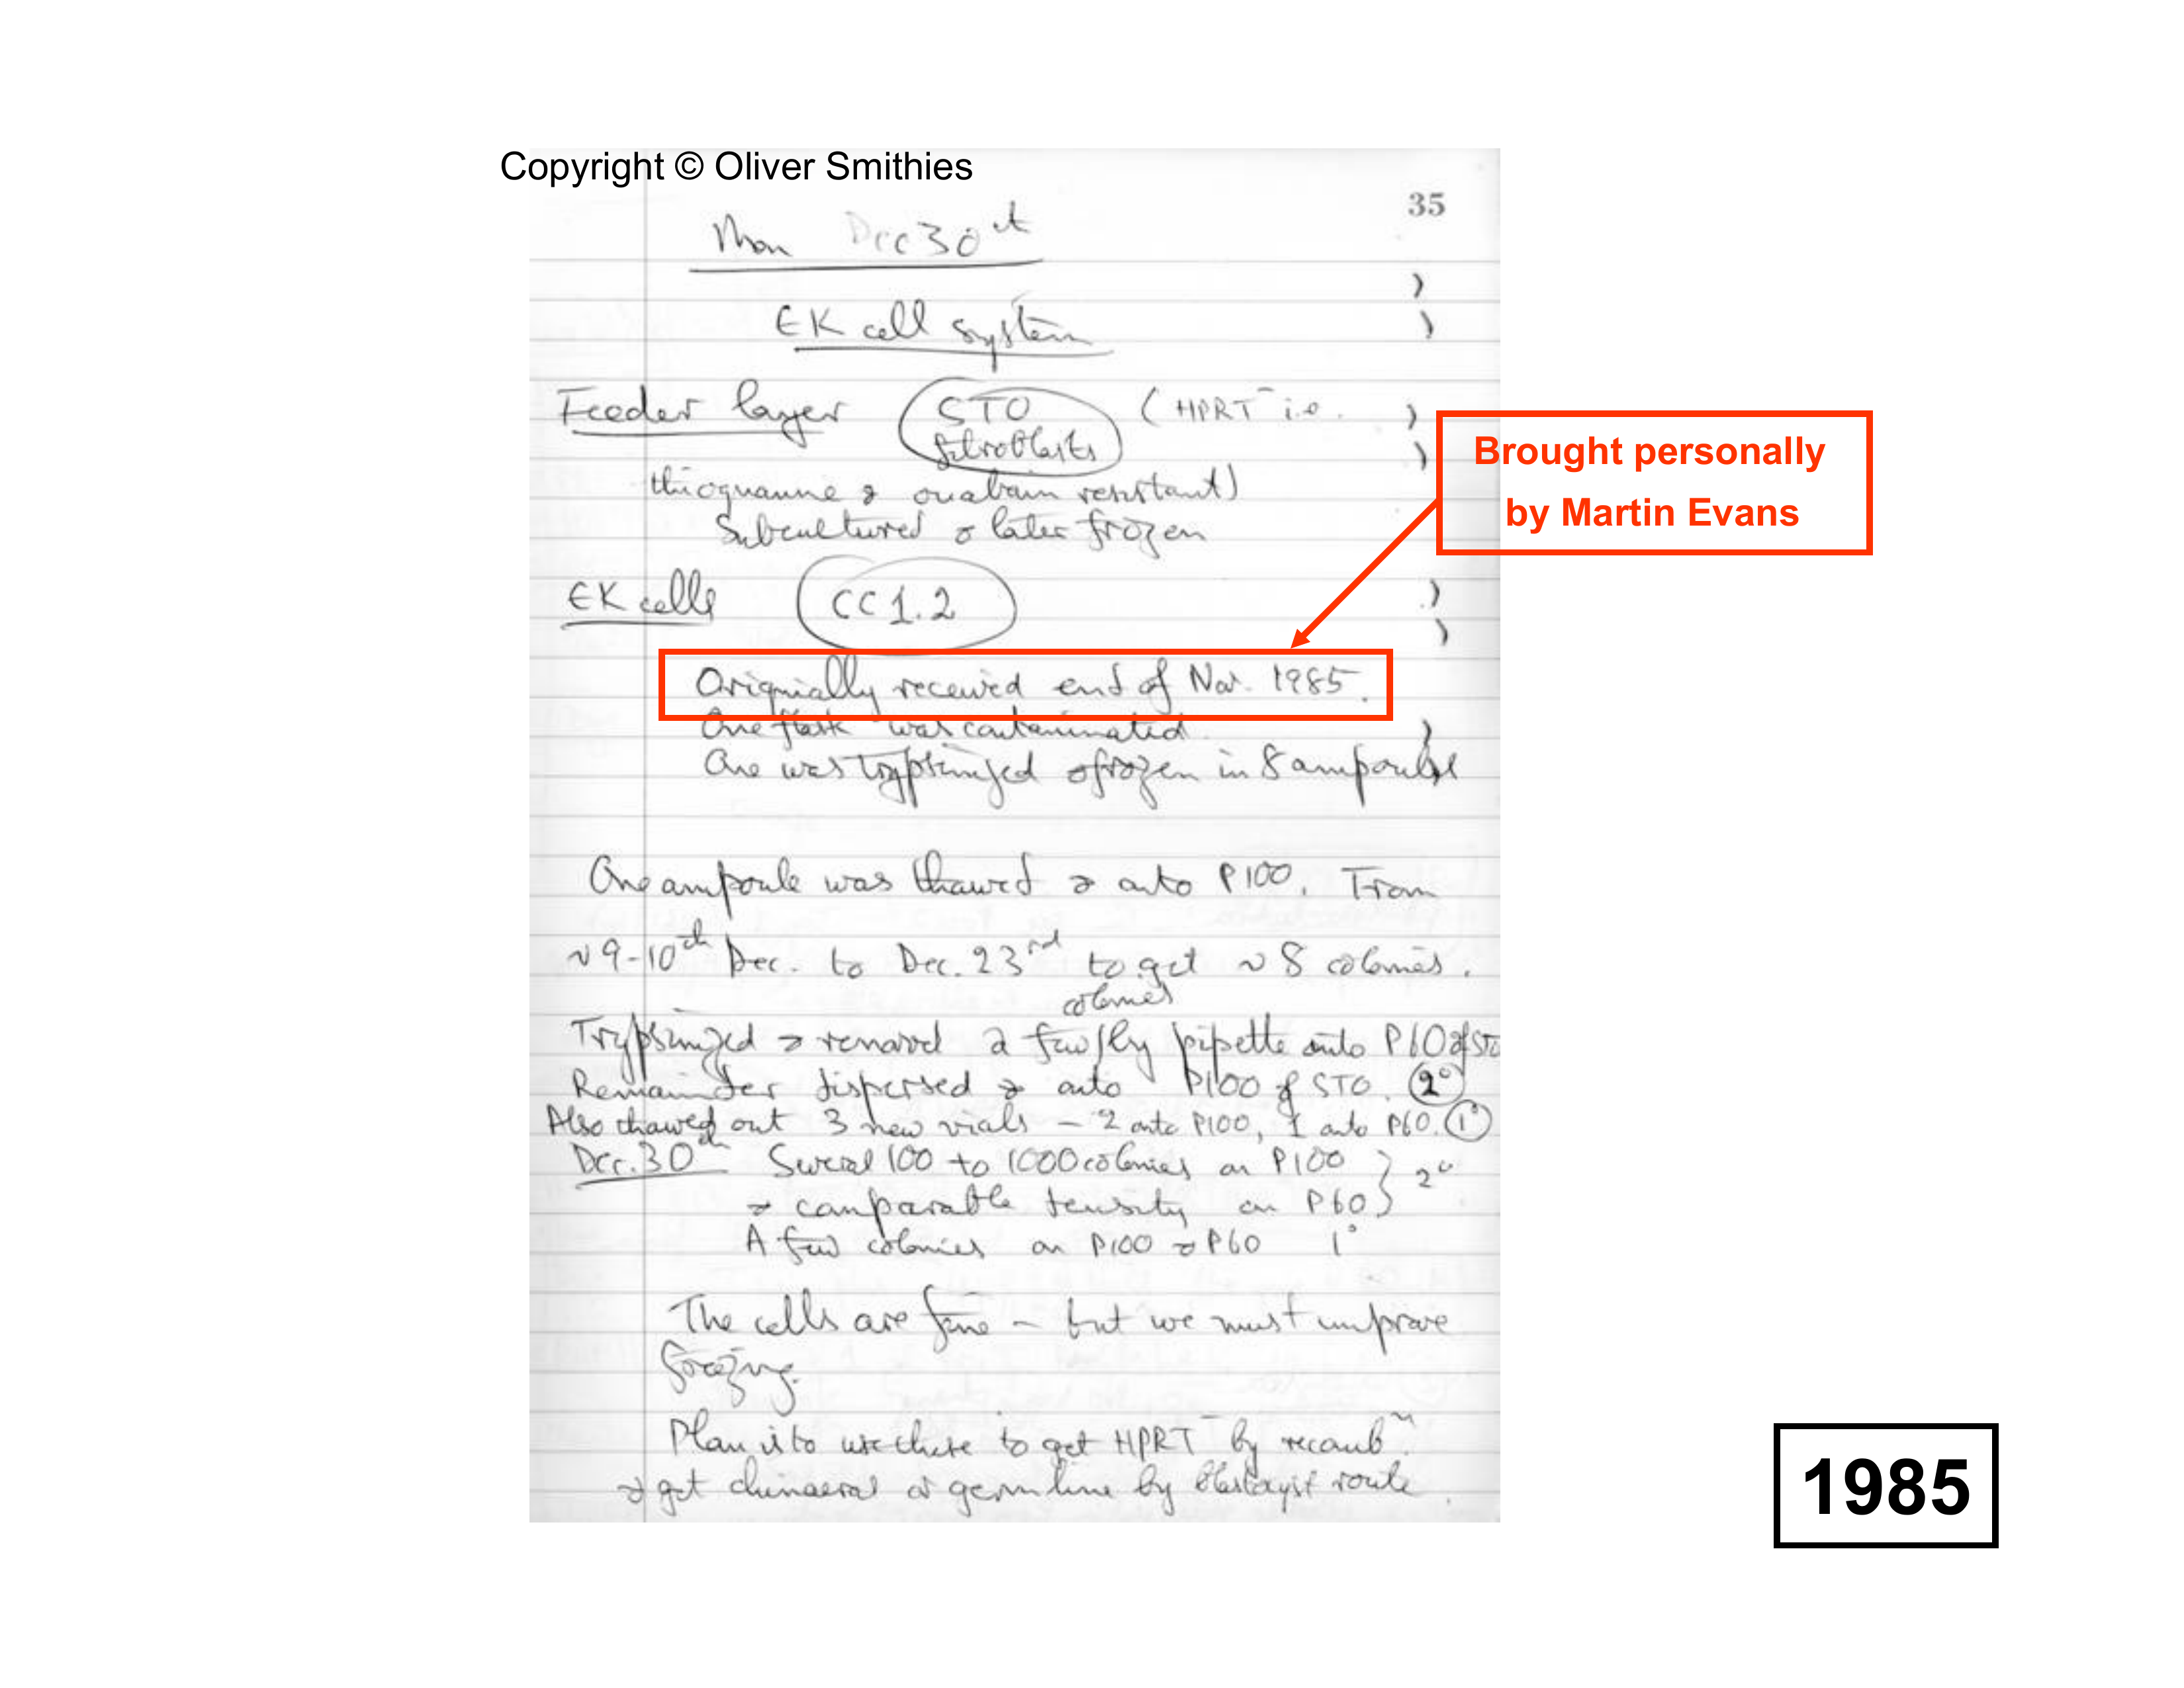 Copyright © Oliver Smithies
35
Mon Dec 30th
EK cell system
Feeder layer STO (HPRT⁻ i.e.
fibroblasts
thioguanine & ouabain resistant)
Subcultured & later frozen
Brought personally
by Martin Evans
EK cells CC1.2
Originally received end of Nov. 1985.
One flask was contaminated.
One was trypsinized & frozen in 8 ampoules
One ampoule was thawed & onto P100. From
~ 9-10th Dec. to Dec. 23rd to get ~ 8 colonies.
colonies
Trypsinized & removed a few by pipette onto P60 of STO
Remainder dispersed & onto P100 of STO. 2°
Also thawed out 3 new vials - 2 onto P100, 1 onto P60. 1°
Dec. 30th Several 100 to 1000 colonies on P100 } 2°
& comparable density on P60
A few colonies on P100 & P60 1°
The cells are fine - but we must improve
freezing.
Plan is to use these to get HPRT⁻ by recombⁿ.
& get chimaeras or germ line by blastocyst route.
1985